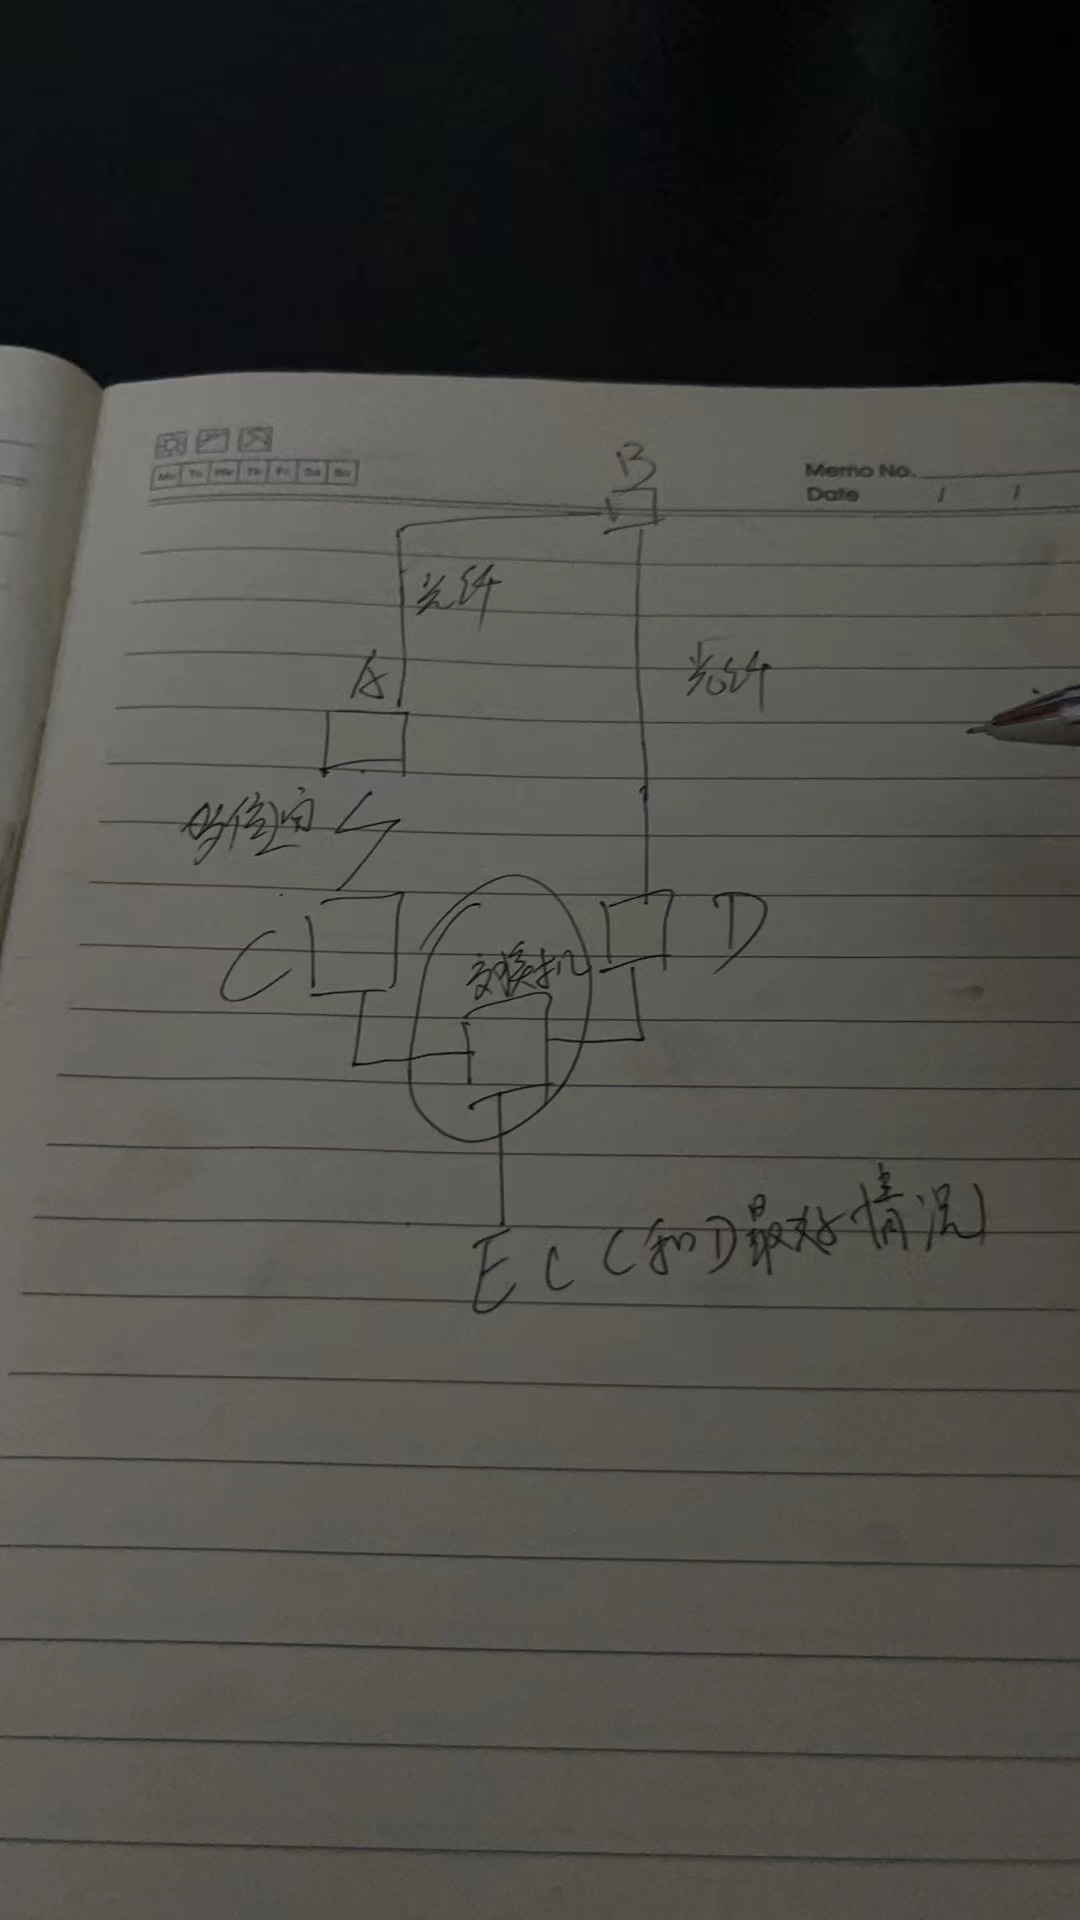 Mo Tu We Th Fr Sa Su
Memo No.
Date / /
B
光纤
A
光纤
C
D
交换机
E ( C和D最好情况)